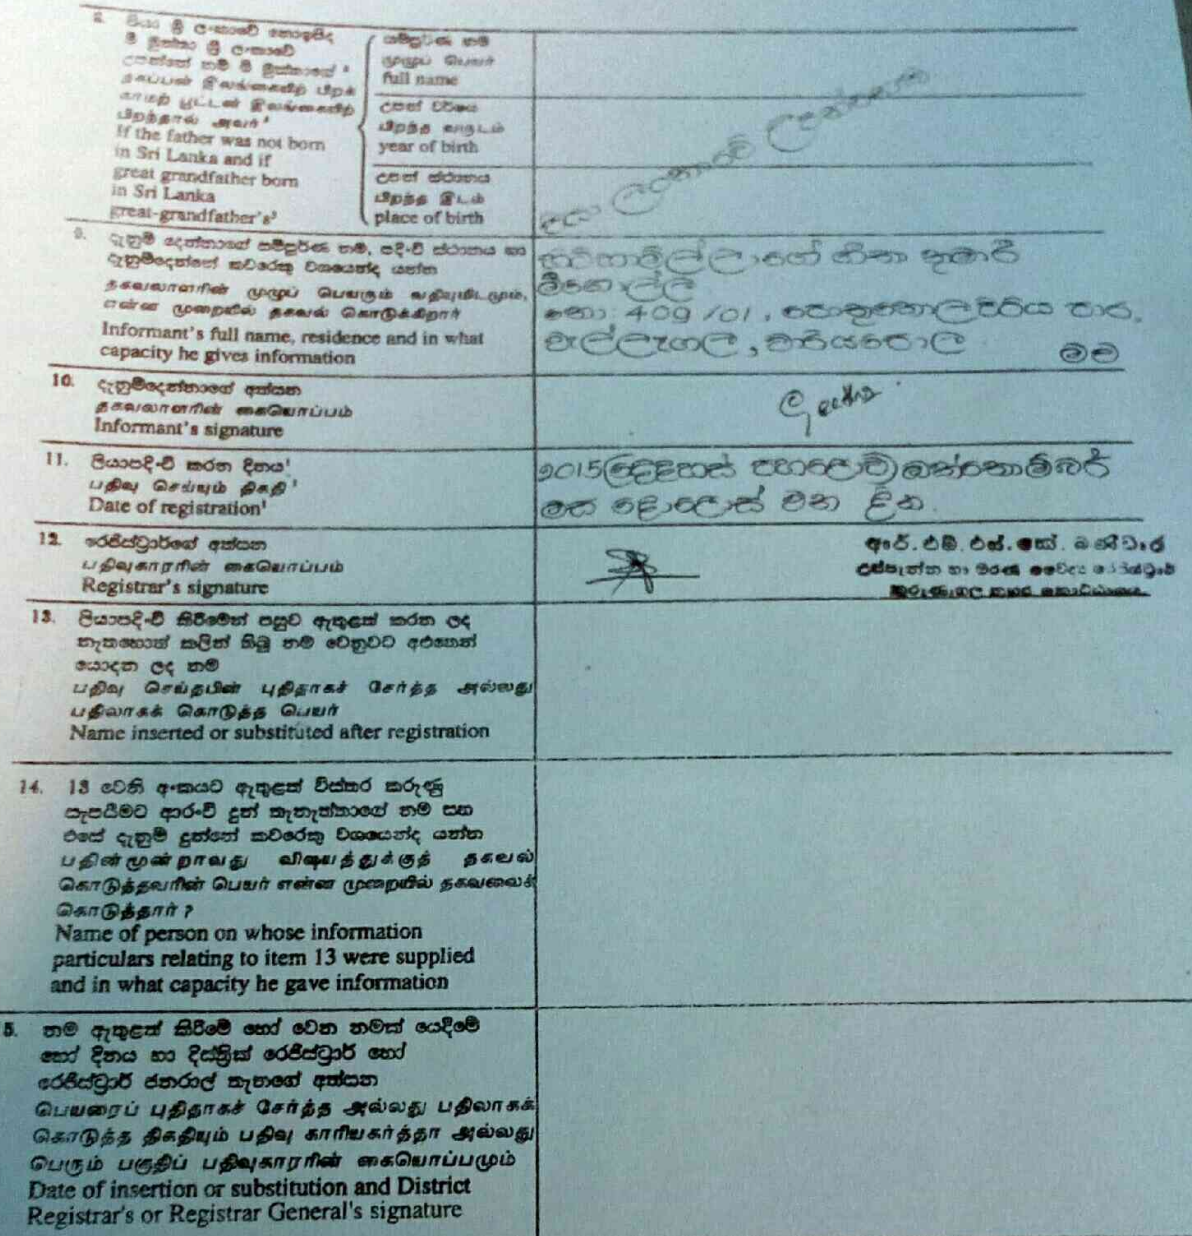 පියා ශ්‍රී ලංකාවේ නොඉපිද
මී මුත්තා ශ්‍රී ලංකාවේ
උපන්නේ නම් මී මුත්තාගේ
தகப்பன் இலங்கையிற் பிறக்
காமற் பூட்டன் இலங்கையிற்
பிறந்தால் அவர்
If the father was not born
in Sri Lanka and if
great grandfather born
in Sri Lanka
great-grandfather's³
සම්පූර්ණ නම
முழுப் பெயர்
full name
උපන් වර්ෂය
பிறந்த வருடம்
year of birth
උපන් ස්ථානය
பிறந்த இடம்
place of birth
9. දැනුම් දෙන්නාගේ සම්පූර්ණ නම, පදිංචි ස්ථානය හා
දැනුම්දෙන්නේ කවරෙකු වශයෙන්ද යන්න
தகவலாளரின் முழுப் பெயரும் வதிவுமிடமும்,
என்ன முறையில் தகவல் கொடுக்கிறார்
Informant's full name, residence and in what
capacity he gives information
කුමාරි
නො: 409/01,
වාරියපොල
මව
10. දැනුම්දෙන්නාගේ අත්සන
தகவலாளரின் கையொப்பம்
Informant's signature
11. ලියාපදිංචි කරන දිනය¹
பதிவு செய்யும் திகதி¹
Date of registration¹
2015 දෙදහස් පහළොව ඔක්තොම්බර්
මස දොලොස් වන දින.
12. රෙජිස්ට්‍රාර්ගේ අත්සන
பதிவுகாரரின் கையொப்பம்
Registrar's signature
ආර්.එම්.එස්.කේ. බණ්ඩාර
උප්පැන්න හා මරණ වෛද්‍ය රෙජිස්ට්‍රාර්
කුරුණෑගල නගර කොට්ඨාශය.
13. ලියාපදිංචි කිරීමෙන් පසුව ඇතුළත් කරන ලද
නැතහොත් කලින් තිබූ නම වෙනුවට අළුතෙන්
යොදන ලද නම
பதிவு செய்தபின் புதிதாகச் சேர்த்த அல்லது
பதிலாகக் கொடுத்த பெயர்
Name inserted or substituted after registration
14. 13 වෙනි අංකයට ඇතුළත් විස්තර කරුණු
සැපයීමට ආරංචි දුන් තැනැත්තාගේ නම සහ
එසේ දැනුම් දුන්නේ කවරෙකු වශයෙන්ද යන්න
பதின்மூன்றாவது விஷயத்துக்குத் தகவல்
கொடுத்தவரின் பெயர் என்ன முறையில் தகவலைக்
கொடுத்தார் ?
Name of person on whose information
particulars relating to item 13 were supplied
and in what capacity he gave information
5. නම ඇතුළත් කිරීමේ හෝ වෙන නමක් යෙදීමේ
හෝ දිනය හා දිස්ත්‍රික් රෙජිස්ට්‍රාර් හෝ
රෙජිස්ට්‍රාර් ජනරාල් තැනගේ අත්සන
பெயரைப் புதிதாகச் சேர்த்த அல்லது பதிலாகக்
கொடுத்த திகதியும் பதிவு காரியகர்த்தா அல்லது
பெரும் பகுதிப் பதிவுகாரரின் கையொப்பமும்
Date of insertion or substitution and District
Registrar's or Registrar General's signature